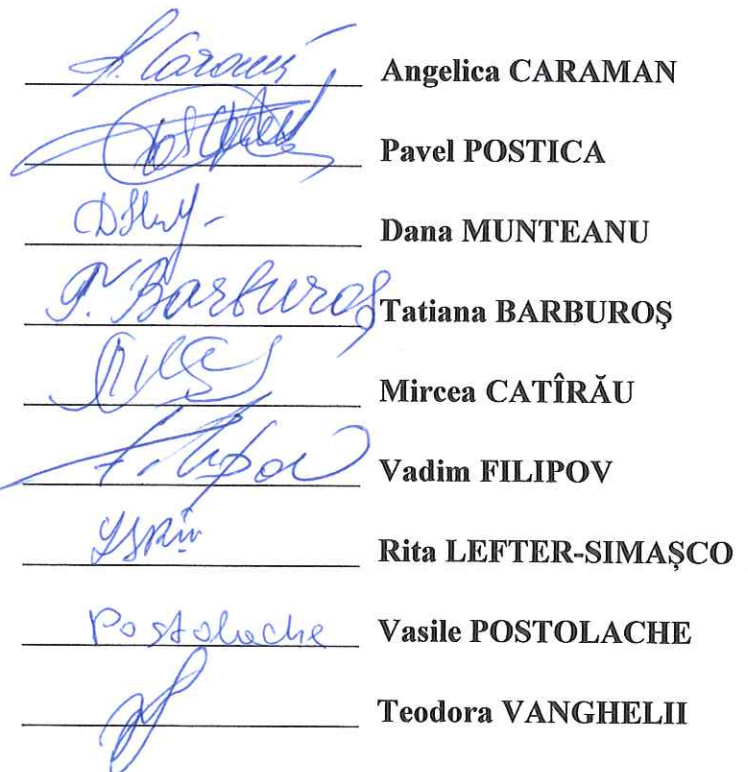 A. Caraman Angelica CARAMAN
Pavel POSTICA
Dana MUNTEANU
T. Barburoș Tatiana BARBUROȘ
Mircea CATÎRĂU
Filipov Vadim FILIPOV
Rita LEFTER-SIMAȘCO
Postolache Vasile POSTOLACHE
Teodora VANGHELII